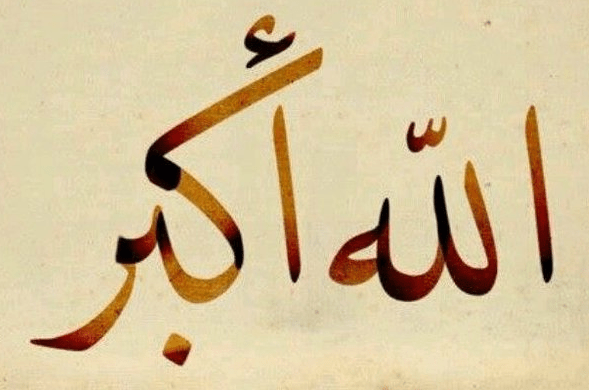 اللّه أكبر